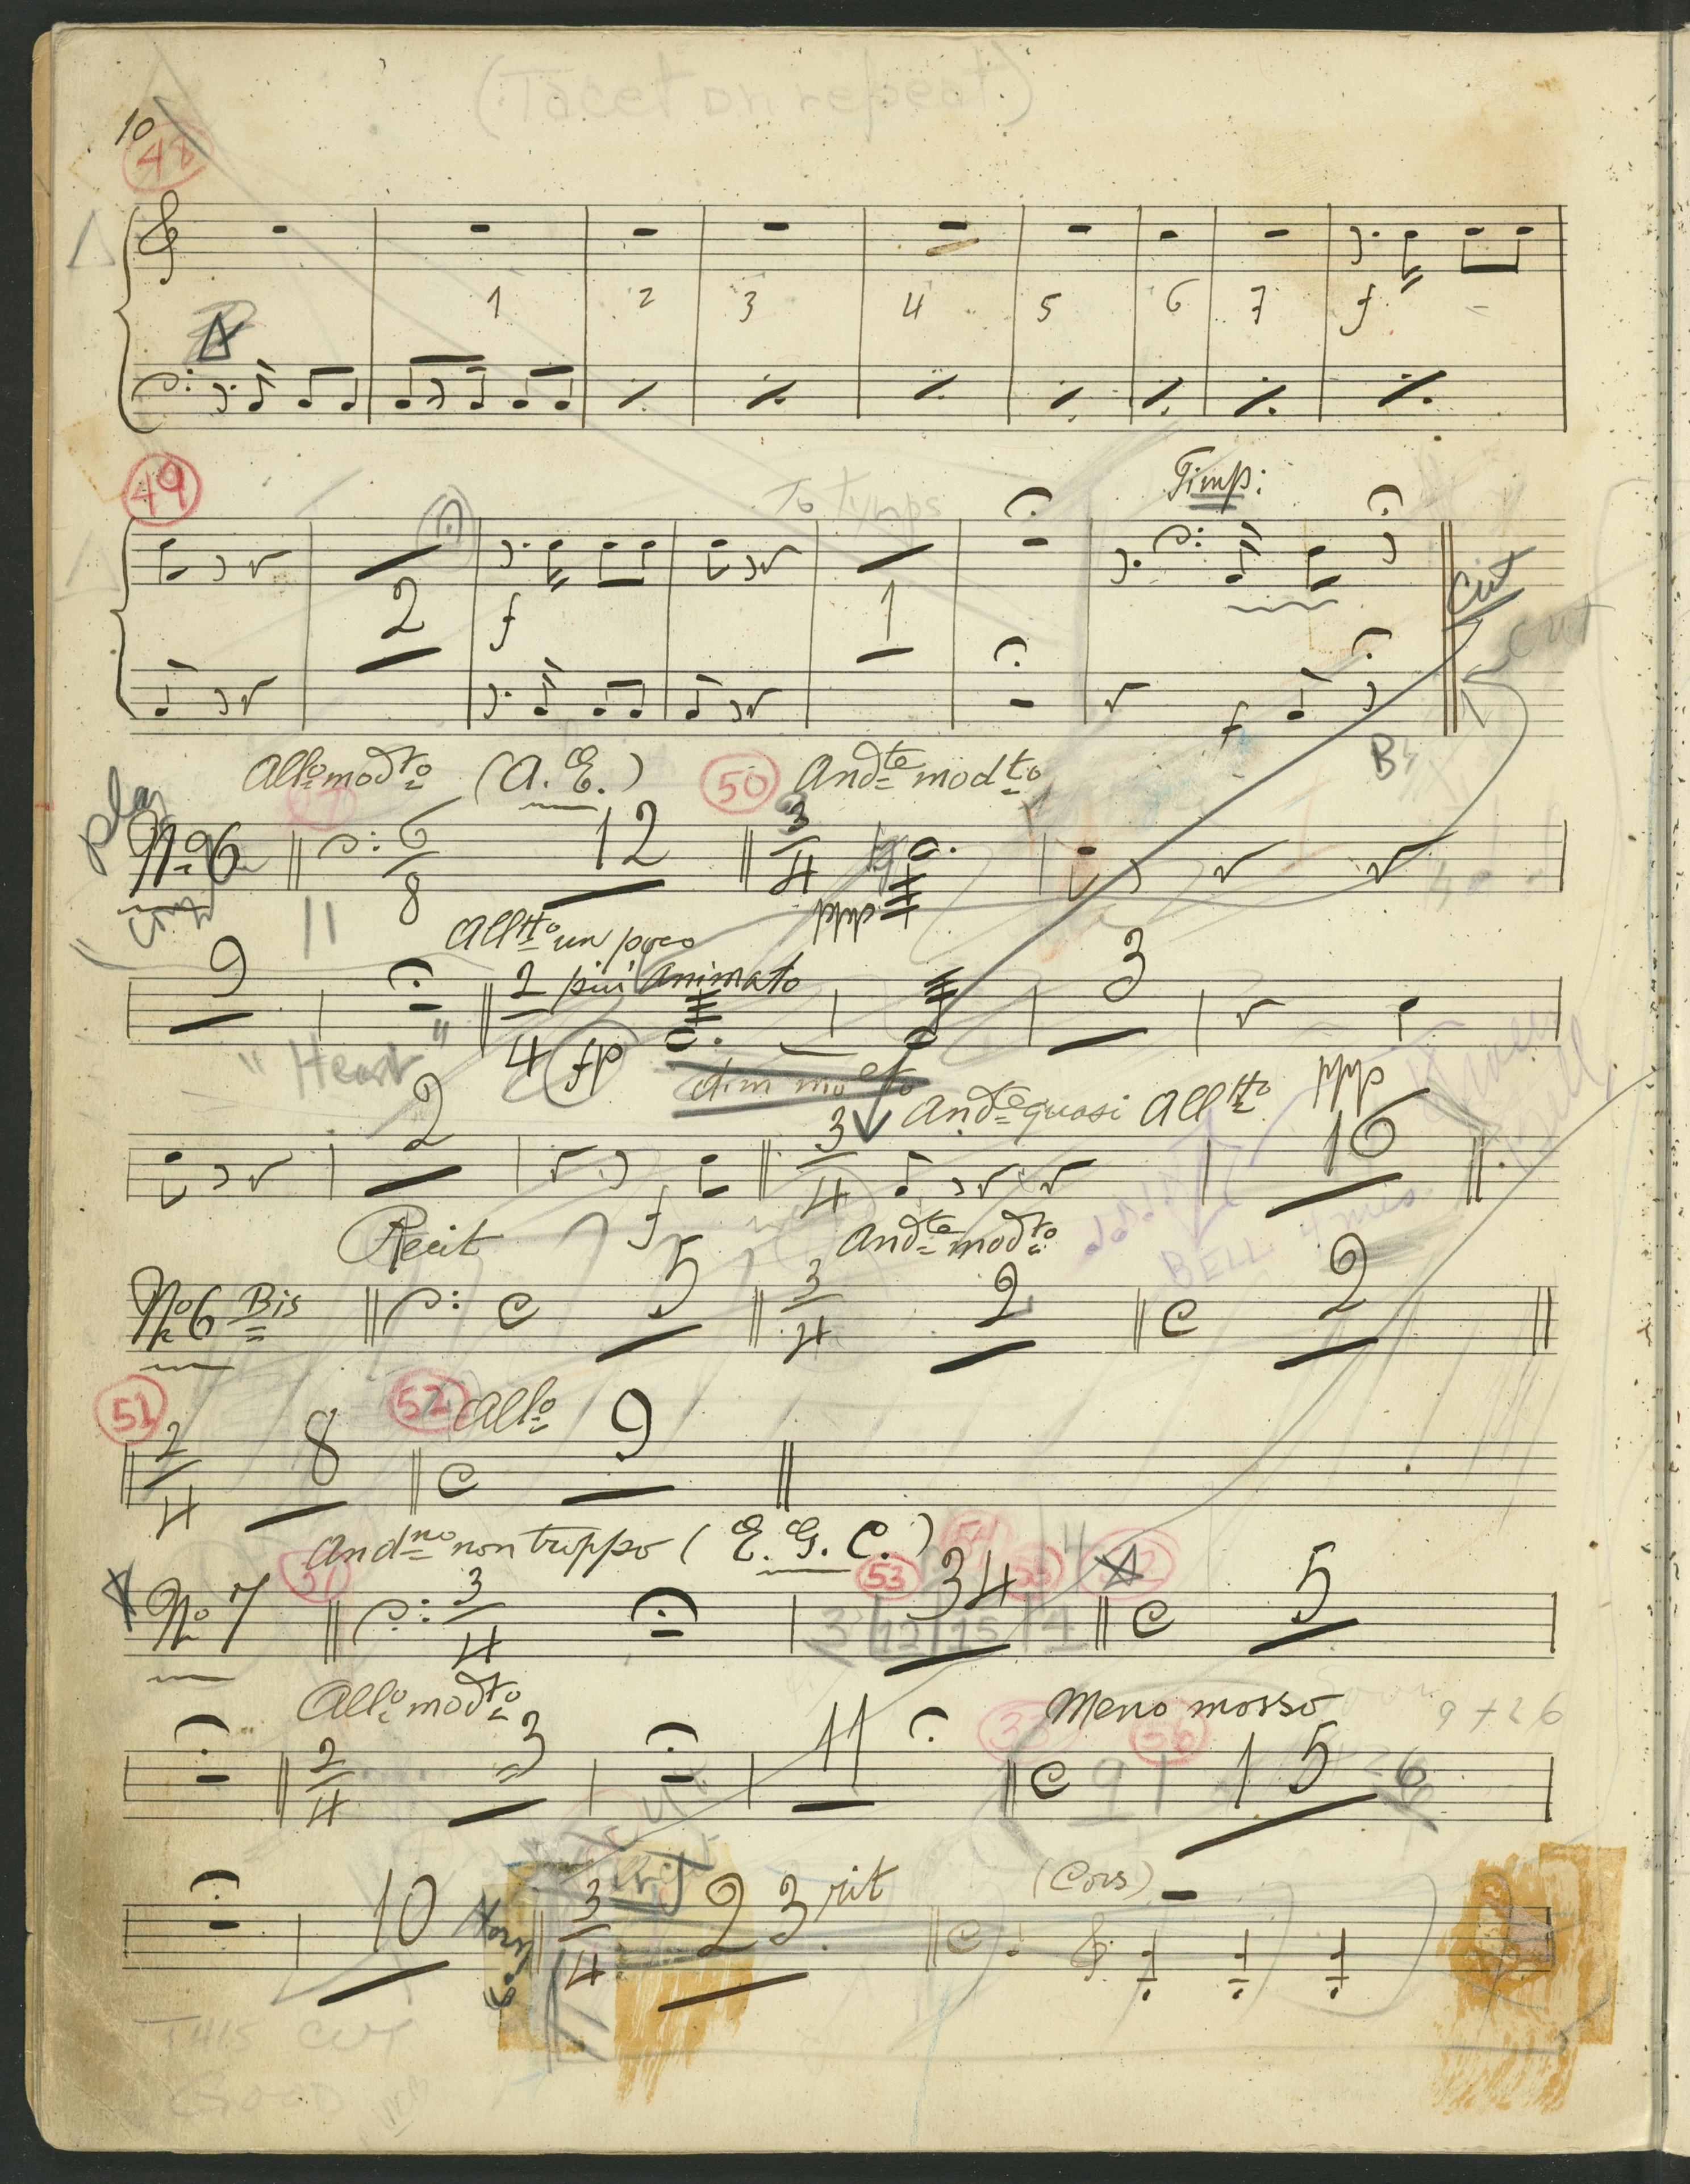 (Tacet on repeat)
10
48
1 2 3 4 5 6 7 f
49
To tymps
Timp:
2 f 1 f
Cut
CUT
All⁰ modto (A. E.) 50 Andte modto
play
Nº 6 6/8 12 3/4 ppp
Alltto un poco
9 2/4 più animato 3
"Heart" fp dim molto ppp
Andte quasi Alltto
2 f 3/4 16
BELL
Recit Andte modto
Nº 6 Bis C 5 3/4 2 C 2
51 52 Allº
2/4 8 C 9
Andno non troppo (E. G. C.) 54
53
Nº 7 3/4 34 C 5
3 12 15 4
Allº modto Meno mosso 9 + 26
56
2/4 3 11 C 9 15 26
10 Horn 3/4 23 rit (Cors) C
THIS CUT
GOOD